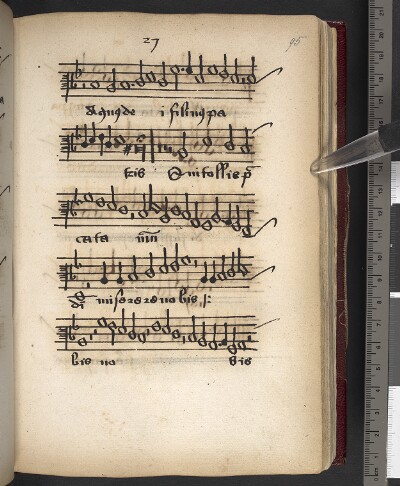 27 95
Agnus de i filius pa
tris Qui tollis p
cata mũdi
miserere nobis
bis no bis